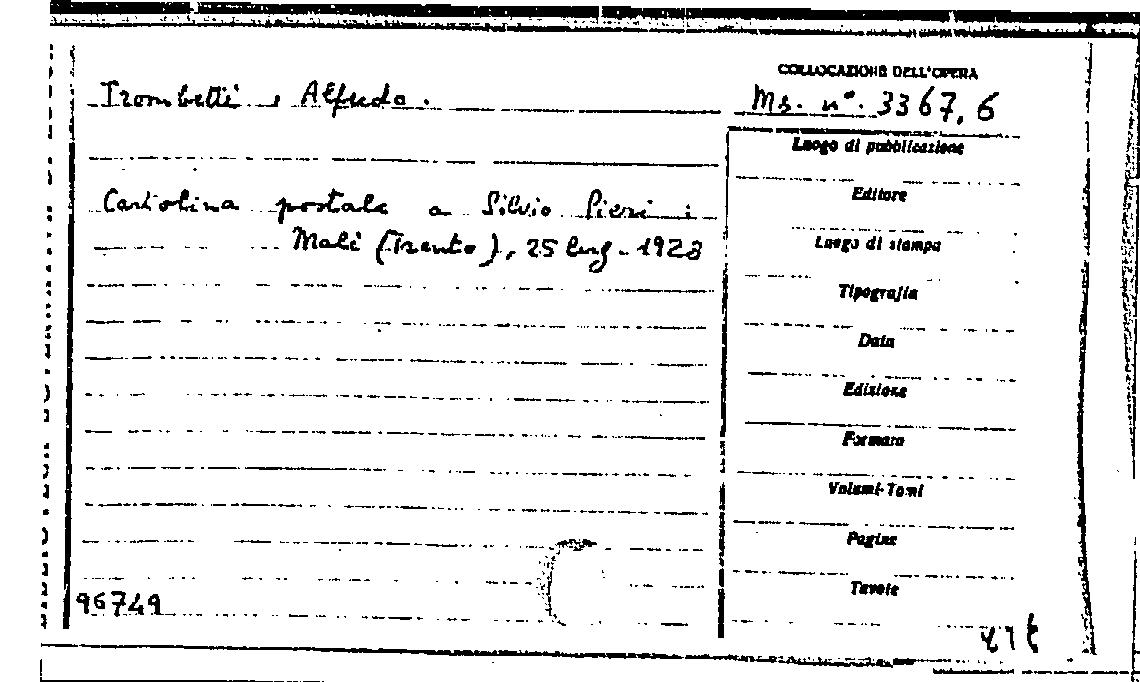 COLLOCAZIONE DELL'OPERA
Trombetti, Alfredo.
Ms. n°. 3367, 6
Luogo di pubblicazione
Editore
Cartolina postale a Silvio Pieri:
Malé (Trento), 25 lug. 1923
Luogo di stampa
Tipografia
Data
Edizione
Formato
Volumi-Tomi
Pagine
Tavole
96749